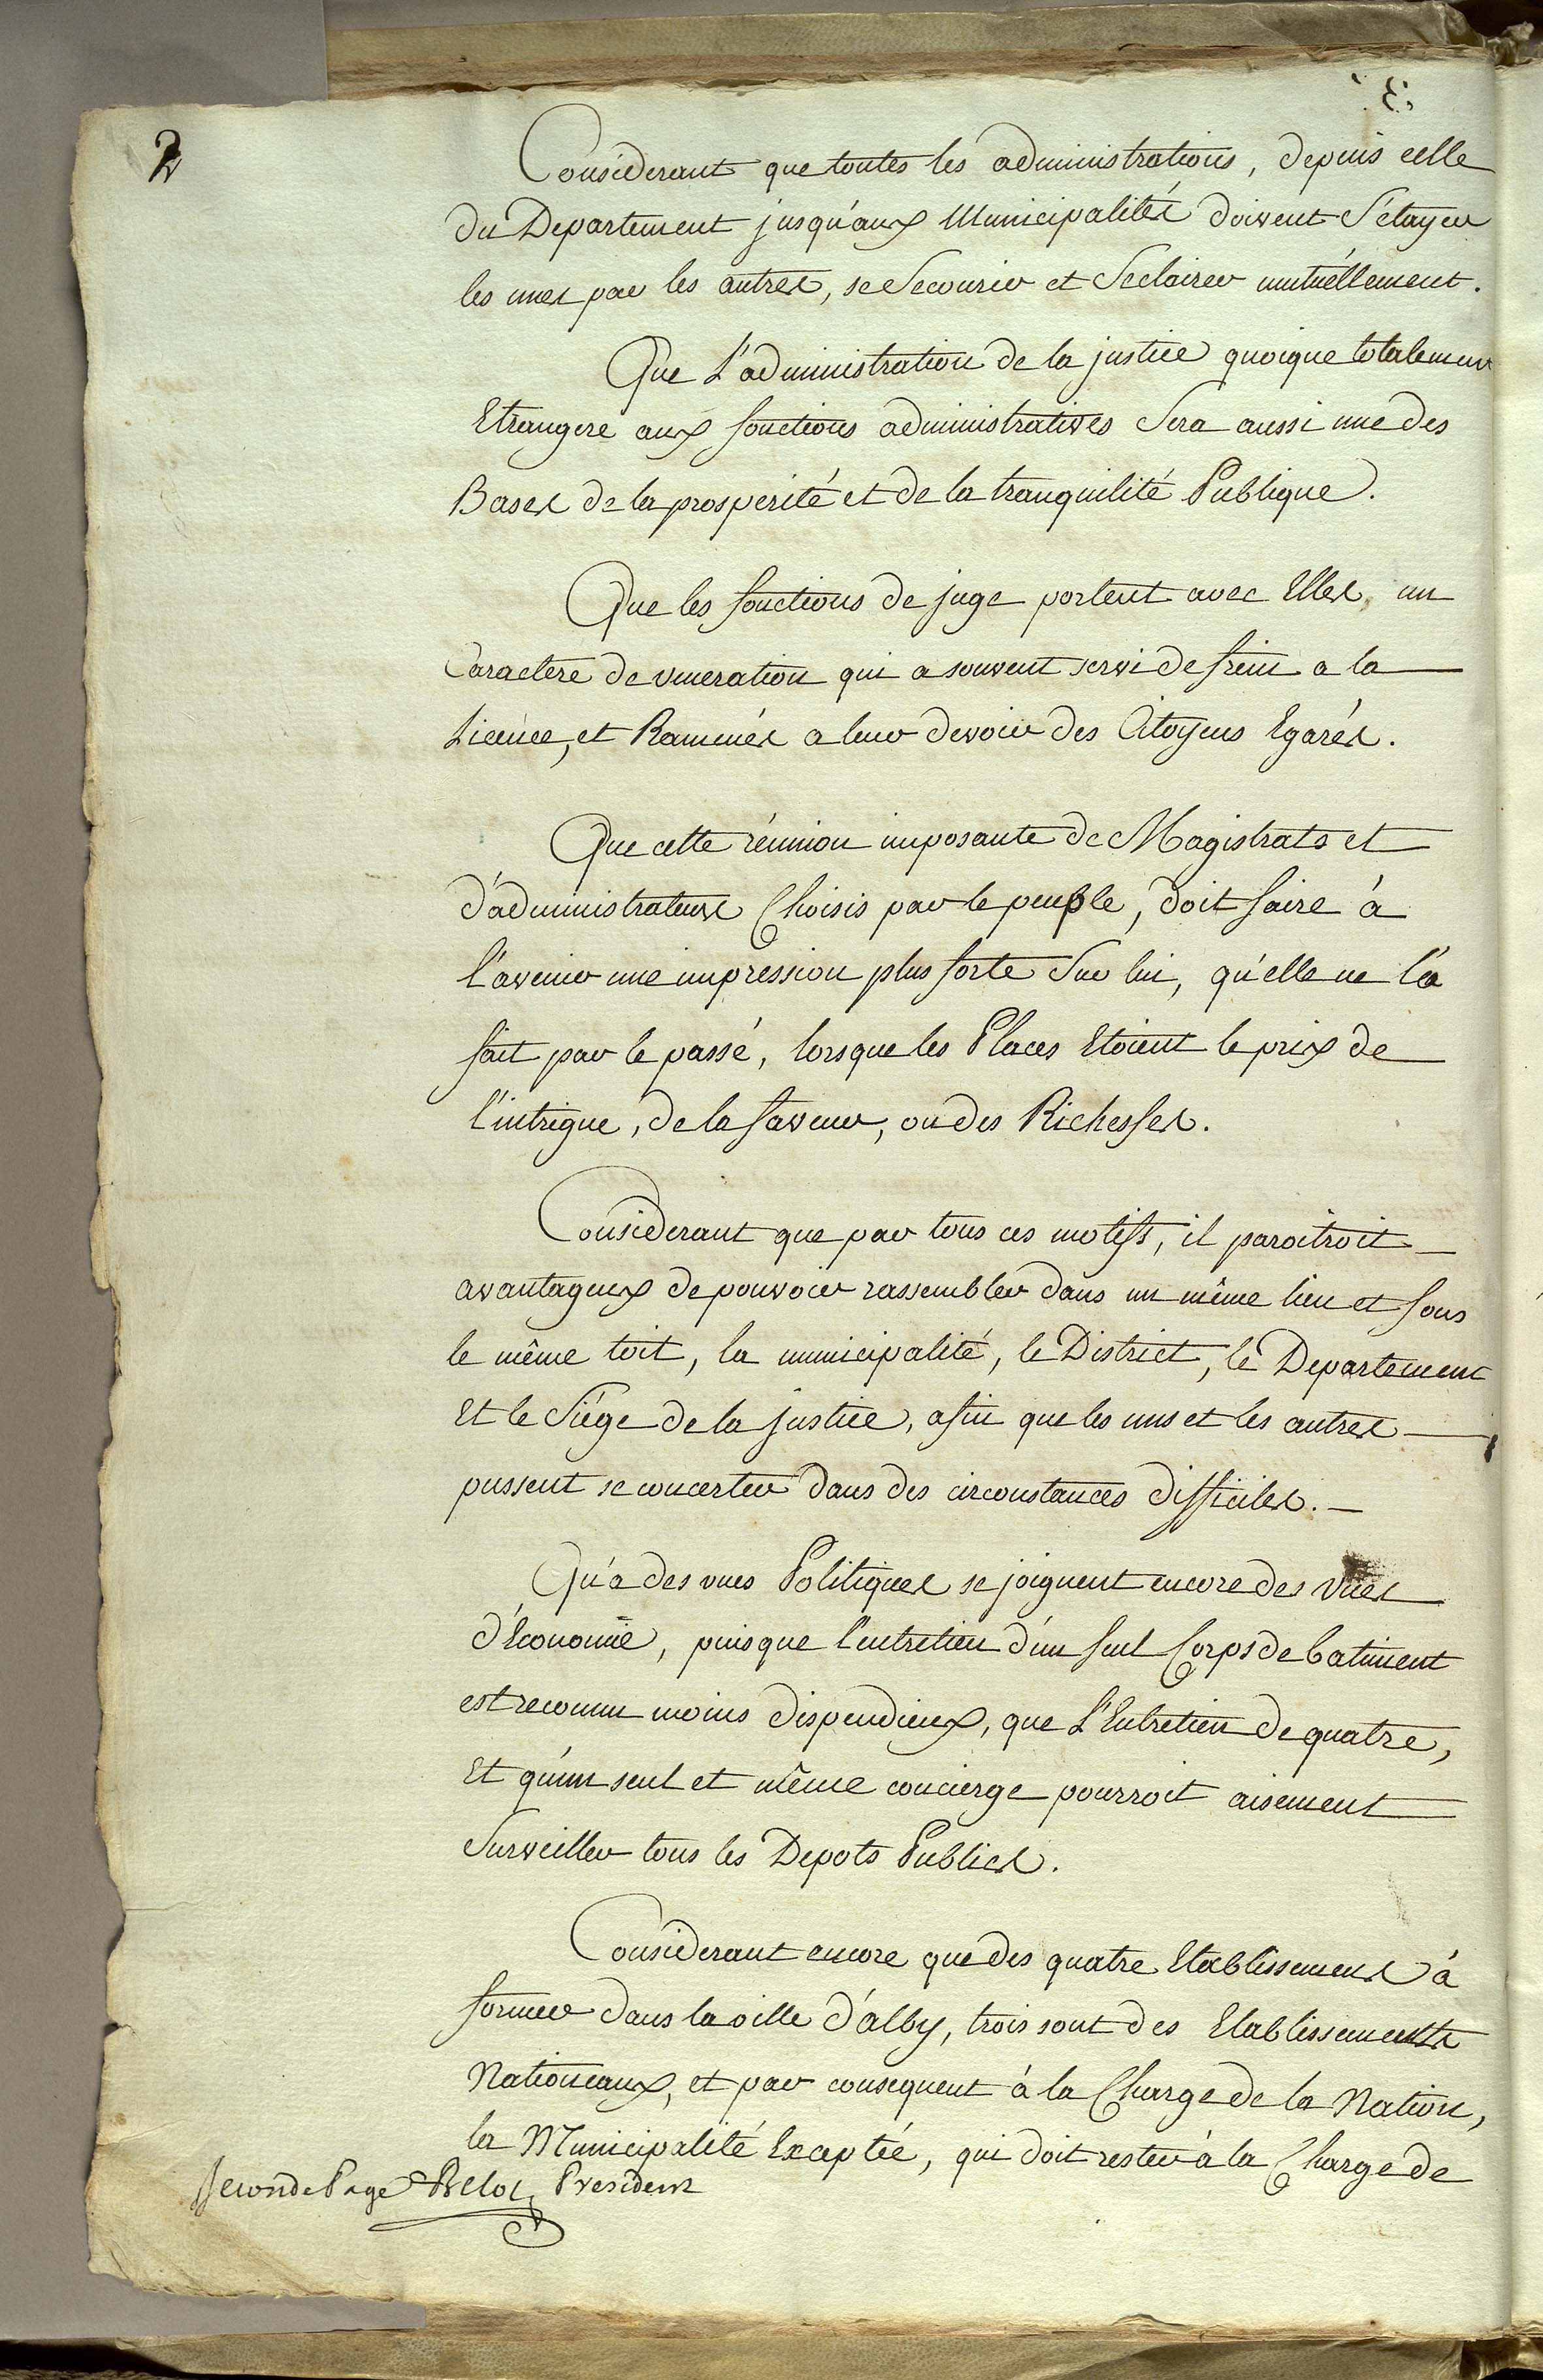 2
Considerant que toutes les administrations, depuis celle
du Departement jusqu'aux Municipalités doivent S'étayer
les unes par les autres, se Secourir et Seclairer mutuéllement.
Que L'administration de la justice quoique totalement
Etrangere aux fonctions administratives Sera aussi une des
Bases de la prosperité et de la tranquilité Publique.
Que les fonctions de juge portent avec Elles, un
Caractere de veneration qui a souvent servi de frein a la
Licence, et Ramenés a leur devoir des Citoyens Egarés.
Que cette réunion imposante de Magistrats et
d'administrateurs Choisis par le peuple, doit faire à
l'avenir une impression plus forte Sur lui, qu'elle ne l'a
fait par le passé, lorsque les Places Etoient le prix de
l'intrigue, de la faveur, ou des Richesses.
Considerant que par tous ces motifs, il paroitroit
avantageux de pouvoir rassembler dans un même lieu et sous
le même toit, la municipalité, le District, le Departement
Et le Siége de la justice, afin que les uns et les autres
pussent se concerter dans des circonstances difficiles.
Qu'a des vues Politiques se joignent encore des vues
d'Economie, puisque l'entretien d'un seul Corps de batiment
est reconnu moins dispendieux, que L'Entretien de quatre,
Et qu'un seul et même concierge pourroit aisement
Surveiller tous les Depots Publics.
Considerant encore que des quatre Etablissemens à
former dans la ville d'alby, trois sont des Etablissements
Nationeaux, et par consequent à la Charge de la Nation,
la Municipalité Exceptée, qui doit rester à la Charge de
Seconde Page Beloc President